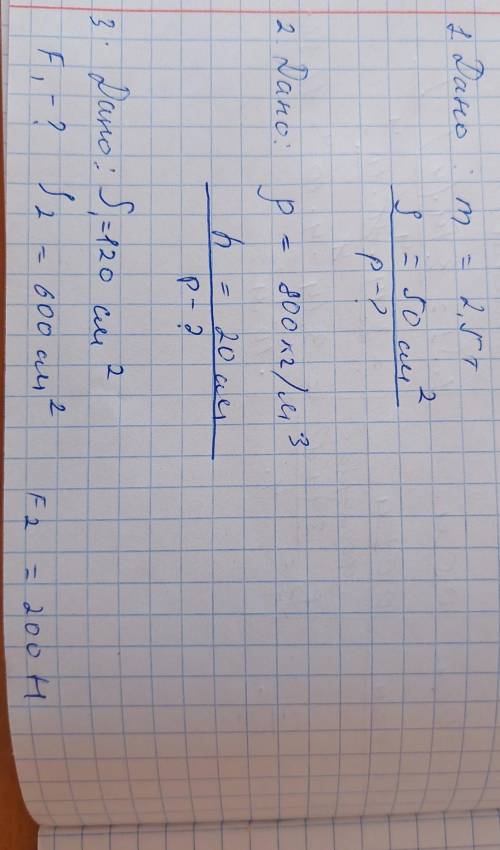 1. Дано: m = 2,5т
S = 50 см²
p - ?
2. Дано: ρ = 800 кг/м³
h = 20 см
p - ?
3. Дано: S₁ = 120 см²
F₁ - ? S₂ = 600 см² F₂ = 200 Н